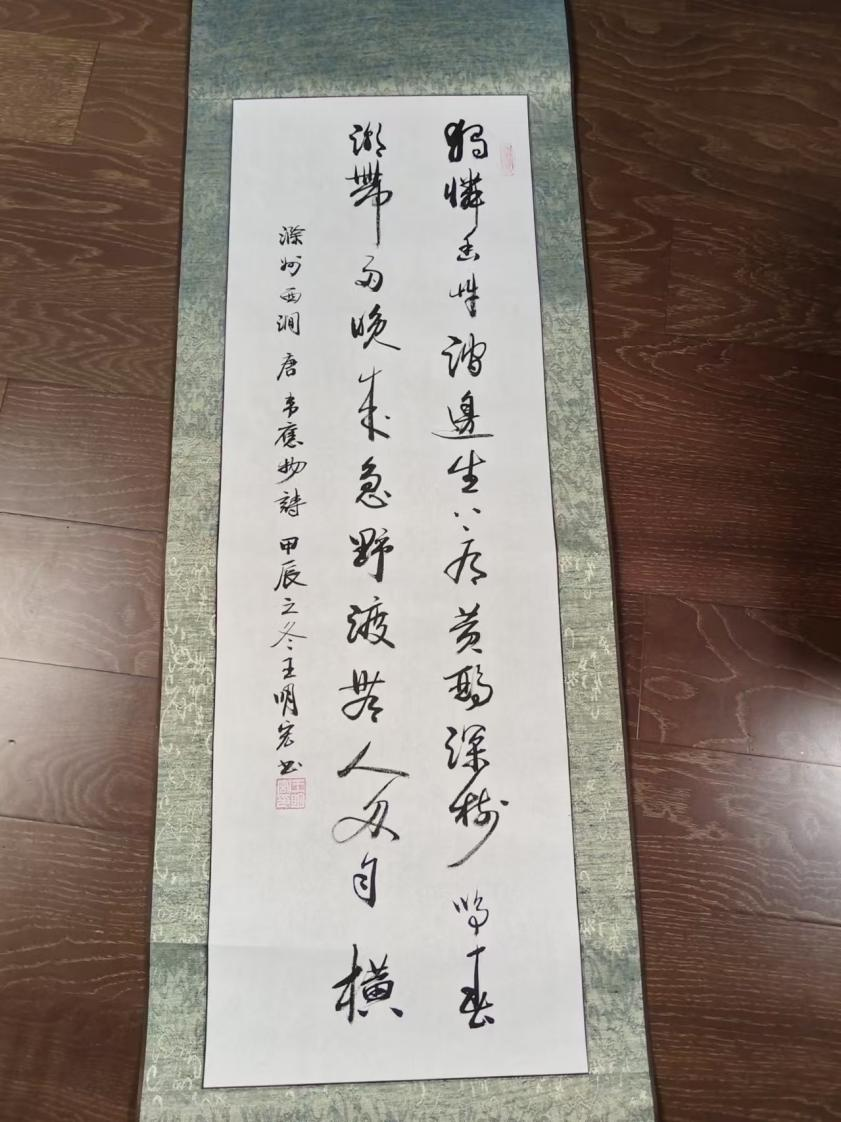 獨憐幽草澗邊生上有黃鸝深樹鳴春
潮帶雨晚來急野渡無人舟自橫
滁州西澗 唐韋應物詩 甲辰之冬王明宏书